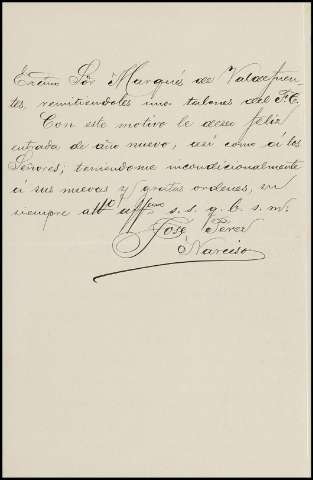 Excmo Sor Marqués de Valdefuen-
tes, remitiendoles unos talones del F.C.
Con este motivo le deseo feliz
entrada de año nuevo, así como á los
Señores; teniendome incondicionalmente
á sus nuevas y gratas ordenes, su
siempre attº affmo s. s. q. b. s. m.
José Perez
ó Narciso